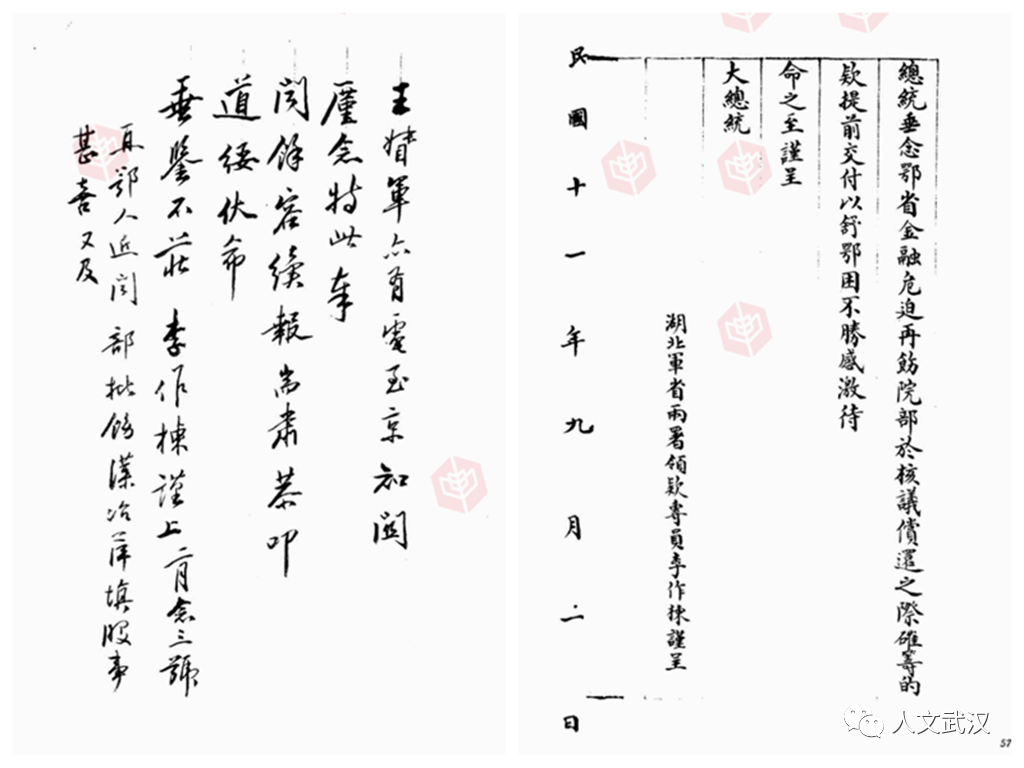 總統垂念鄂省金融危迫再飭院部於核議償還之際確籌的
款提前交付以舒鄂困不勝感激待
命之至謹呈
大總統
湖北軍省兩署領款專員李作棟謹呈
民國十一年九月二日
王督軍亦有電至京知關
廑念特此奉
聞餘容續報耑肅恭叩
道綏伏希
垂鑒不莊 李作棟謹上 二月念三號
再鄂人近聞部批飭漢冶萍填股事
甚喜又及
人文武汉
57